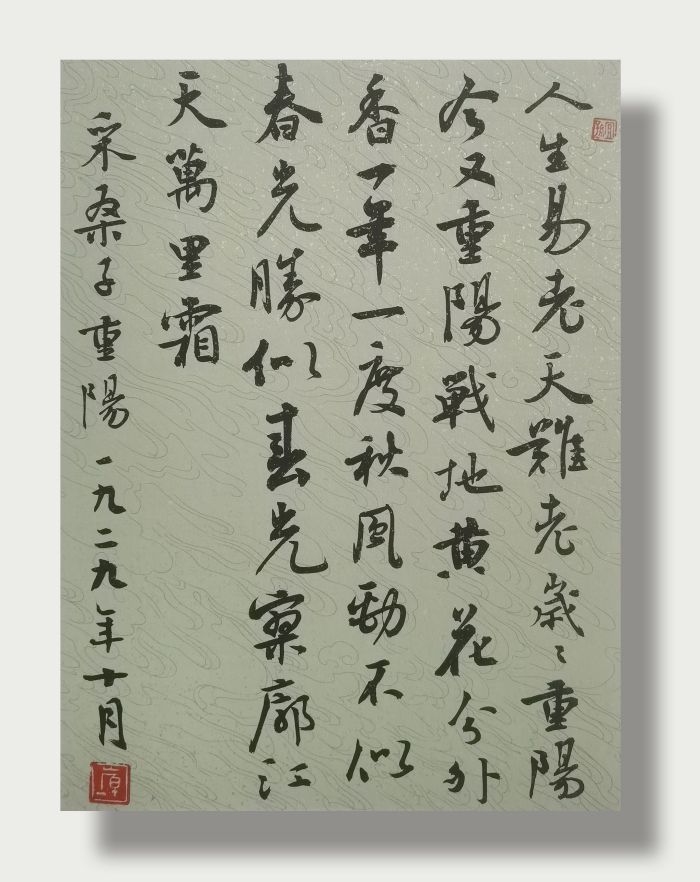 人生易老天難老歲〻重陽
今又重陽戰地黄花分外
香一年一度秋風勁不似
春光勝似春光寥廓江
天萬里霜
采桑子重陽一九二九年十月